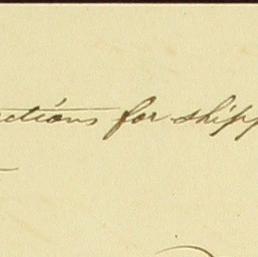 ctions for shipp